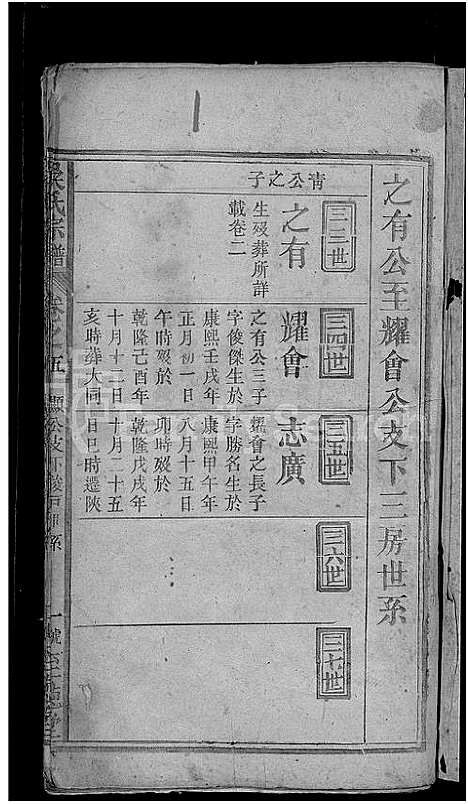 之有公至耀會公支下三房世系
三三世
三四世
三五世
三六世
三七世
靑公之子
之有
生歿葬所詳
載卷二
耀會
之有公三子
字俊傑生於
康熙壬戌年
正月初一日
午時歿於
乾隆己酉年
十月十二日
亥時葬大同
志廣
耀會之長子
字勝名生於
康熙甲午年
八月十五日
卯時歿於
乾隆戊戌年
十月二十五
日巳時遷陝
吳氏宗譜
卷之五
顯公支下